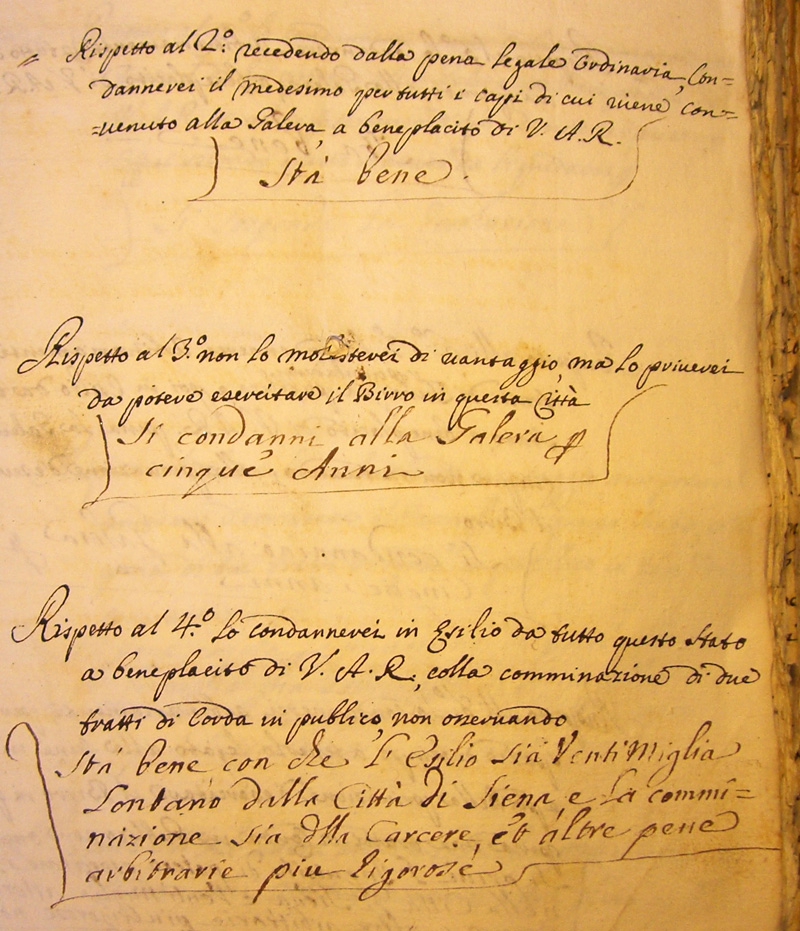 = Rispetto al 2.º recedendo dalla pena legale Ordinaria, Con=
dannerei il medesimo per tutti i capi di cui viene con=
=venuto alla Galera a beneplacito di V. A. R.
Stà bene.
Rispetto al 3.º non lo molesterei di vantaggio, ma lo priverei
da potere esercitare il Birro in questa Città
Si condanni alla Galera p
cinque Anni
Rispetto al 4.º Lo Condannerei in Esilio da tutto questo Stato
a beneplacito di V. A. R., colla comminazione di due
tratti di Corda in publico non osservando
Stà bene con che l'Esilio sia Venti Miglia
Lontano dalla Città di Siena, e La commi=
nazione sia dlla Carcere, et altre pene
arbitrarie piu Rigorose